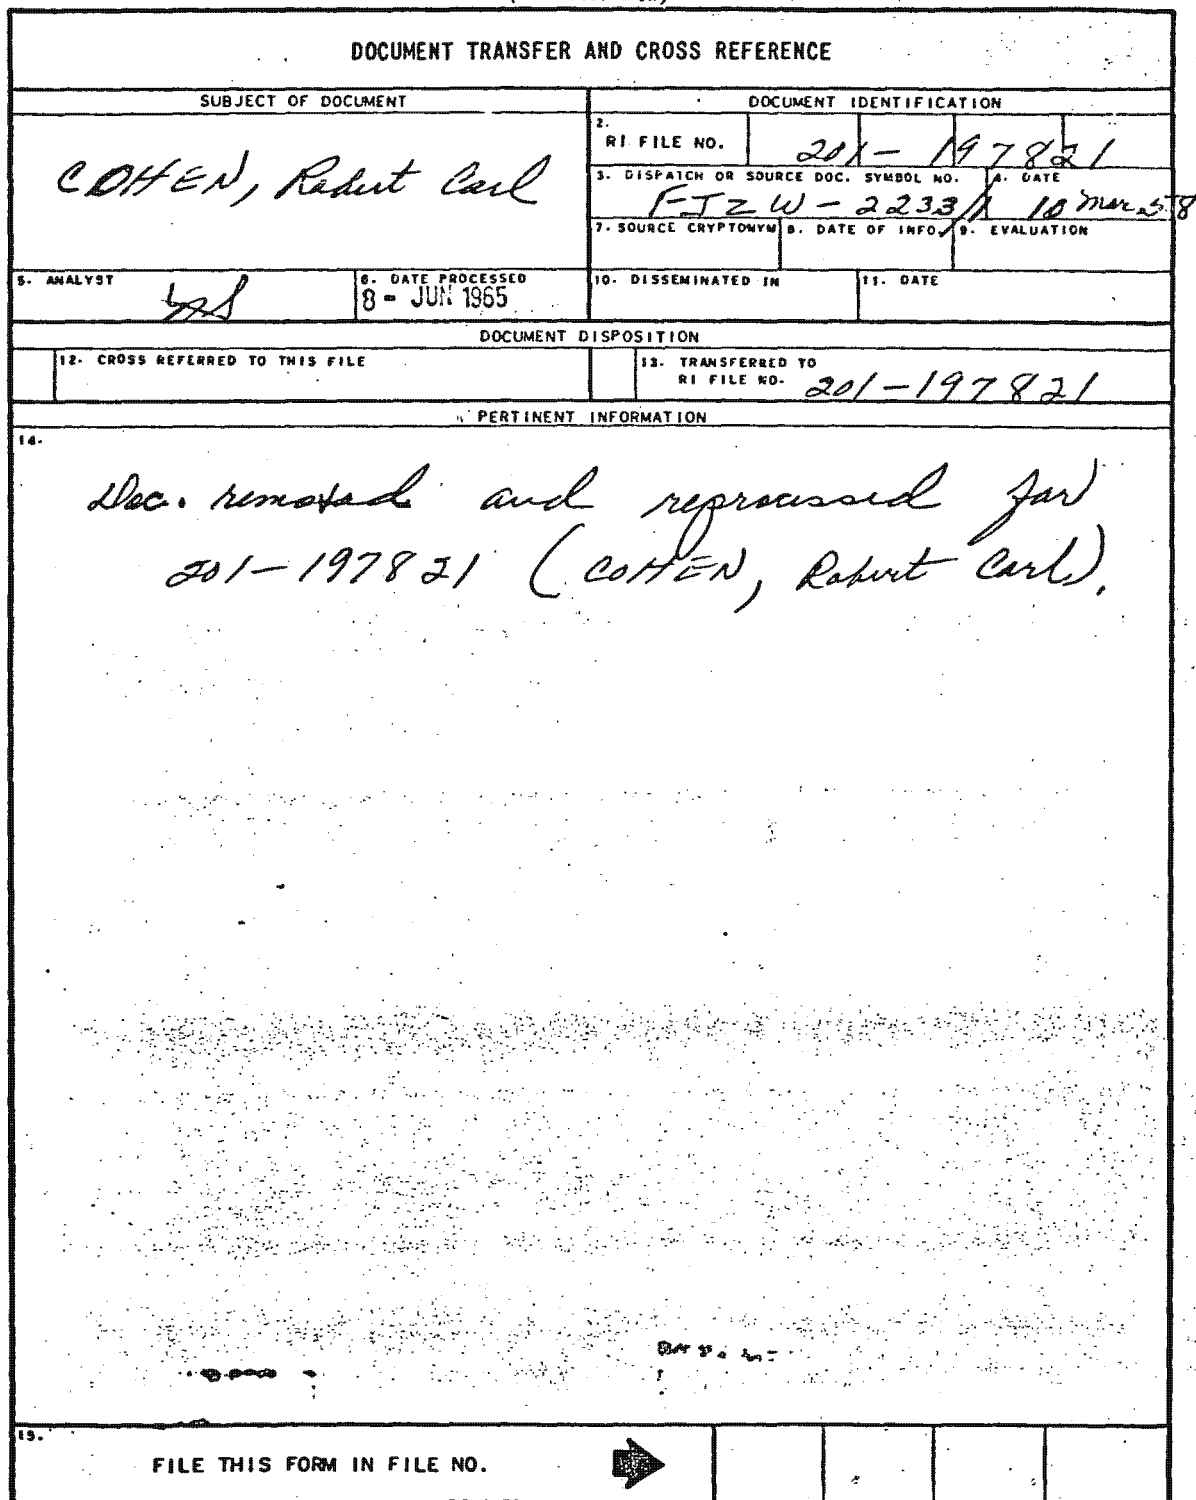 DOCUMENT TRANSFER AND CROSS REFERENCE
SUBJECT OF DOCUMENT
DOCUMENT IDENTIFICATION
COHEN, Robert Carl
2.
RI FILE NO. 201-197821
3. DISPATCH OR SOURCE DOC. SYMBOL NO. 4. DATE
FJZW-2233 10 Mar 58
7. SOURCE CRYPTONYM 8. DATE OF INFO. 9. EVALUATION
5. ANALYST 6. DATE PROCESSED
8 - JUN 1965
10. DISSEMINATED IN 11. DATE
DOCUMENT DISPOSITION
12. CROSS REFERRED TO THIS FILE
13. TRANSFERRED TO
RI FILE NO. 201-197821
PERTINENT INFORMATION
14.
Doc. removed and reprocessed for
201-197821 (COHEN, Robert Carl).
15.
FILE THIS FORM IN FILE NO.